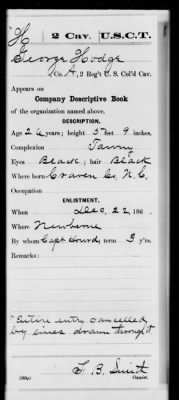 H | 2 Cav. | U.S.C.T.
George Hodge
Co. A, 2 Reg't U. S. Col'd Cav.
Appears on
Company Descriptive Book
of the organization named above.
DESCRIPTION.
Age 26 years; height 5 feet 9 inches.
Complexion Tawny
Eyes Black; hair Black
Where born Craven Co, N.C.
Occupation
ENLISTMENT.
When Dec. 22, 186 .
Where Newberne
By whom Capt term 3 y'rs.
Remarks:
Entire entry cancelled
by lines drawn through it
F. B. Smith
Copyist.